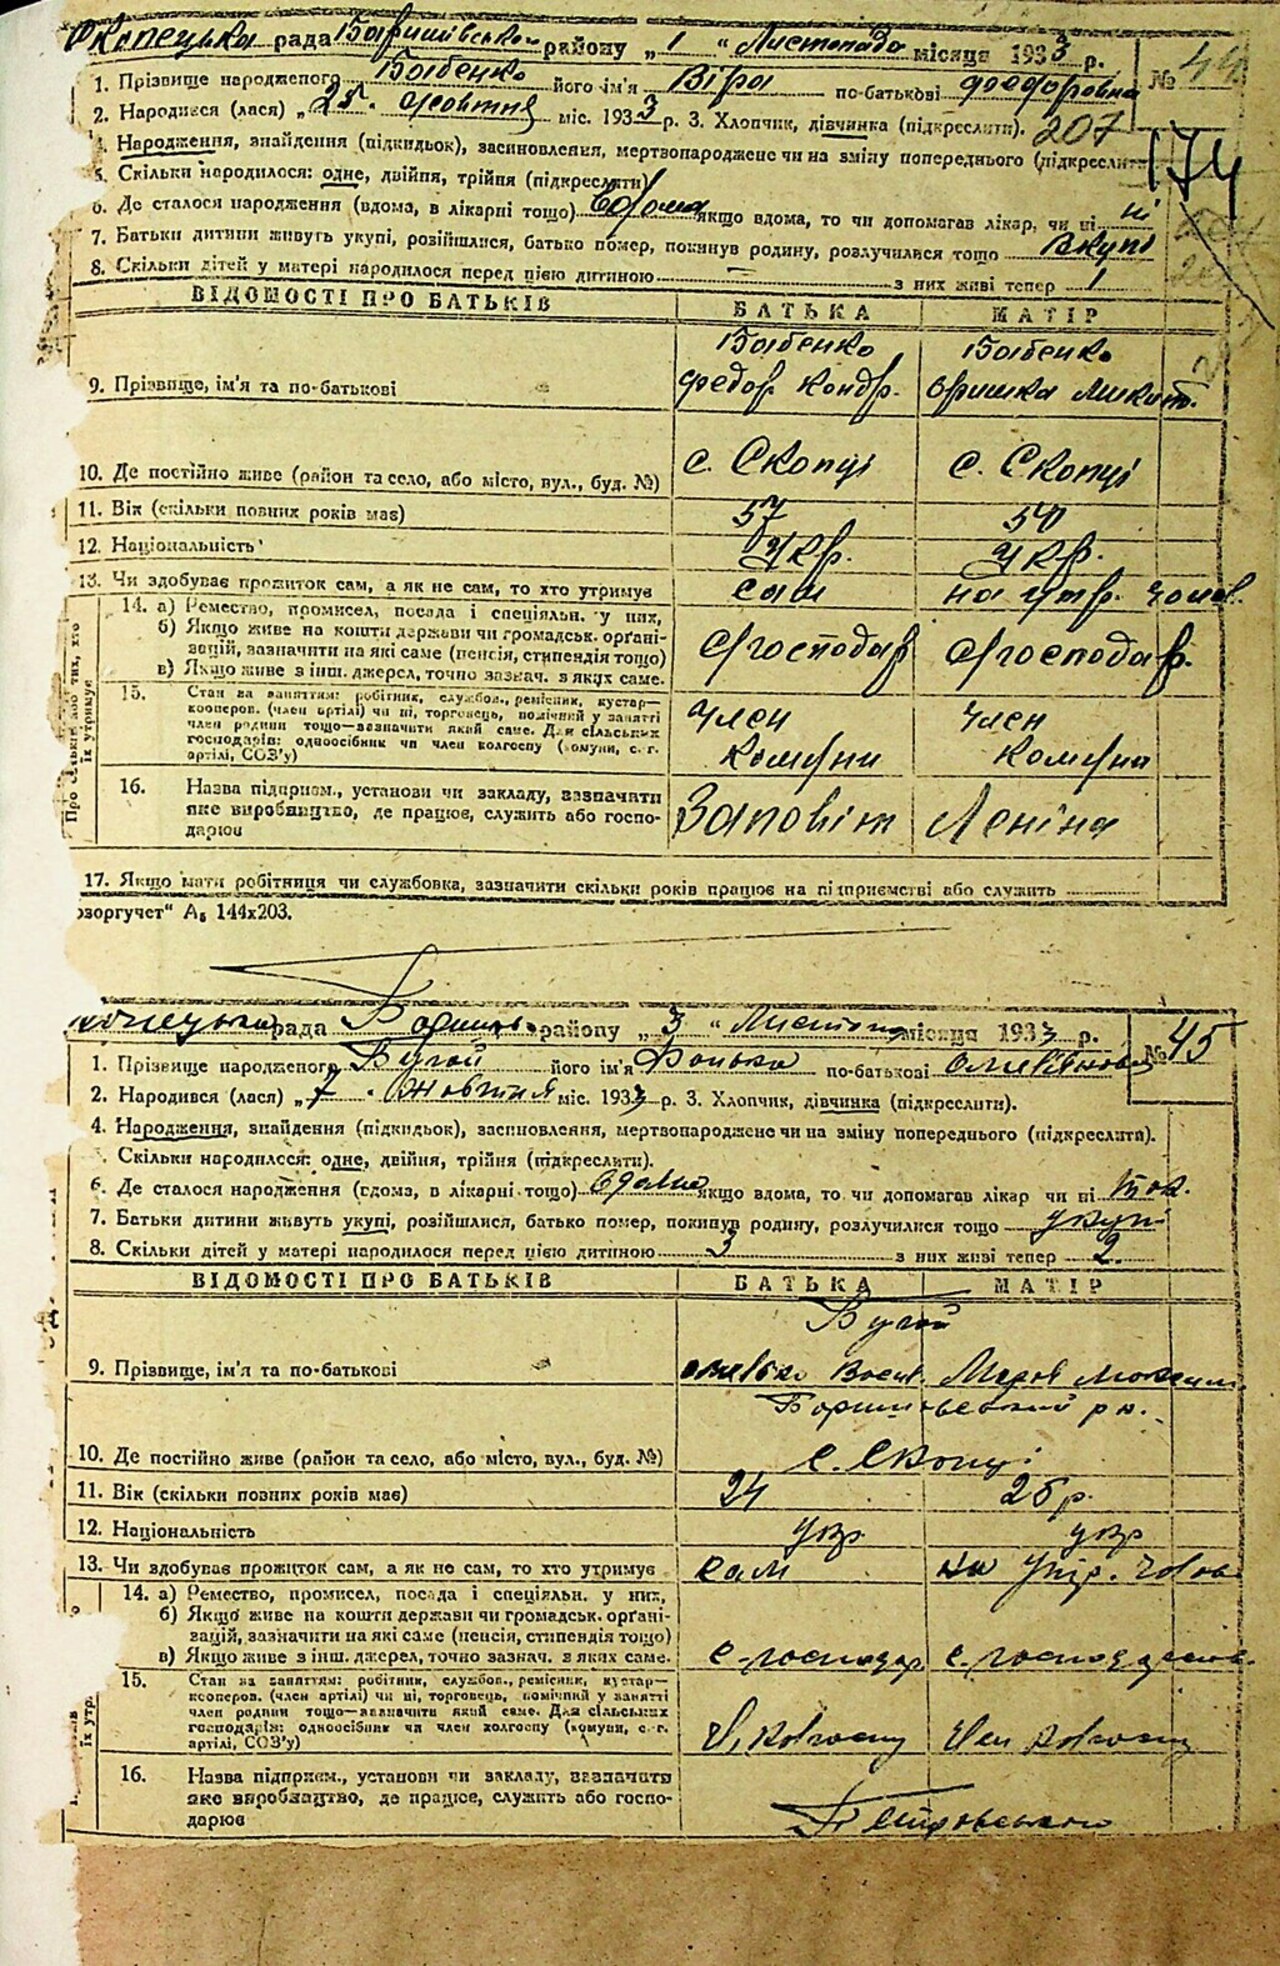 Скопецька рада Баришівського району „ 1 “ Листопада місяця 1933 р.
№ 44
1. Прізвище народженого Бабенко його ім'я Віра по-батькові Федоровна
2. Народився (лася) „ 25. Жовтня міс. 1933 р. 3. Хлопчик, дівчинка (підкреслити). 207
174
4. Народження, знайдення (підкидьок), засиновлення, мертвонароджене чи на зміну попереднього (підкреслити
5. Скільки народилося: одне, двійня, трійня (підкреслити)
6. Де сталося народження (вдома, в лікарні тощо) вдома якщо вдома, то чи допомагав лікар, чи ні ні
7. Батьки дитини живуть укупі, розійшлися, батько помер, покинув родину, розлучилися тощо Вкупі
8. Скільки дітей у матері народилося перед цією дитиною — з них живі тепер 1
ВІДОМОСТІ ПРО БАТЬКІВ БАТЬКА МАТІР
Бабенко Бабенко
9. Прізвище, ім'я та по-батькові Федор Кондр. Оришка Микит.
10. Де постійно живе (район та село, або місто, вул., буд. №) с. Скопці с. Скопці
11. Вік (скільки повних років має) 57
12. Національність Укр. Укр.
13. Чи здобуває прожиток сам, а як не сам, то хто утримує сам на утр. чолов.
14. а) Ремество, промисел, посада і спеціяльн. у них,
б) Якщо живе на кошти держави чи громадськ. органі-
зацій, зазначити на які саме (пенсія, стипендія тощо)
в) Якщо живе з інш. джерел, точно зазнач. з яких саме.
15. Стан за заняттям: робітник, службов., ремісник, кустар—
кооперов. (член артілі) чи ні, торговець, помічний у занятті
член родини тощо—зазначити який саме. Для сільських
господарів: одноосібник чи член колгоспу (комуни, с. г.
артілі, СОЗ'у)
член член
Комуни Комуни
16. Назва підприєм., установи чи закладу, зазначити
яке виробництво, де працює, служить або госпо-
дарює
Заповіт Леніна
17. Якщо мати робітниця чи службовка, зазначити скільки років працює на підприємстві або служить
озоргучет“ А₅ 144х203.
рада району „ 3 “ місяця 1933 р.
№ 45
1. Прізвище народженого Бугай його ім'я по-батькові
2. Народився (лася) „ 7 . Жовтня міс. 1933 р. 3. Хлопчик, дівчинка (підкреслити).
4. Народження, знайдення (підкидьок), засиновлення, мертвонароджене чи на зміну попереднього (підкреслити).
. Скільки народилося: одне, двійня, трійня (підкреслити).
6. Де сталося народження (вдома, в лікарні тощо) вдома якщо вдома, то чи допомагав лікар чи ні так.
7. Батьки дитини живуть укупі, розійшлися, батько помер, покинув родину, розлучилися тощо укупі
8. Скільки дітей у матері народилося перед цією дитиною 3 з них живі тепер 2.
ВІДОМОСТІ ПРО БАТЬКІВ БАТЬКА МАТІР
Бугай
9. Прізвище, ім'я та по-батькові
10. Де постійно живе (район та село, або місто, вул., буд. №) с. Скопці
11. Вік (скільки повних років має) 24 26 р.
12. Національність укр укр
13. Чи здобуває прожиток сам, а як не сам, то хто утримує сам на утр. чолов.
14. а) Ремество, промисел, посада і спеціяльн. у них,
б) Якщо живе на кошти держави чи громадськ. органі-
зацій, зазначити на які саме (пенсія, стипендія тощо)
в) Якщо живе з інш. джерел, точно зазнач. з яких саме.
с-господар.
15. Стан за заняттям: робітник, службов., ремісник, кустар—
кооперов. (член артілі) чи ні, торговець, помічний у занятті
член родини тощо—зазначити який саме. Для сільських
господарів: одноосібник чи член колгоспу (комуни, с. г.
артілі, СОЗ'у)
Член колгоспу
16. Назва підприєм., установи чи закладу, зазначити
яке виробництво, де працює, служить або госпо-
дарює
Петровського